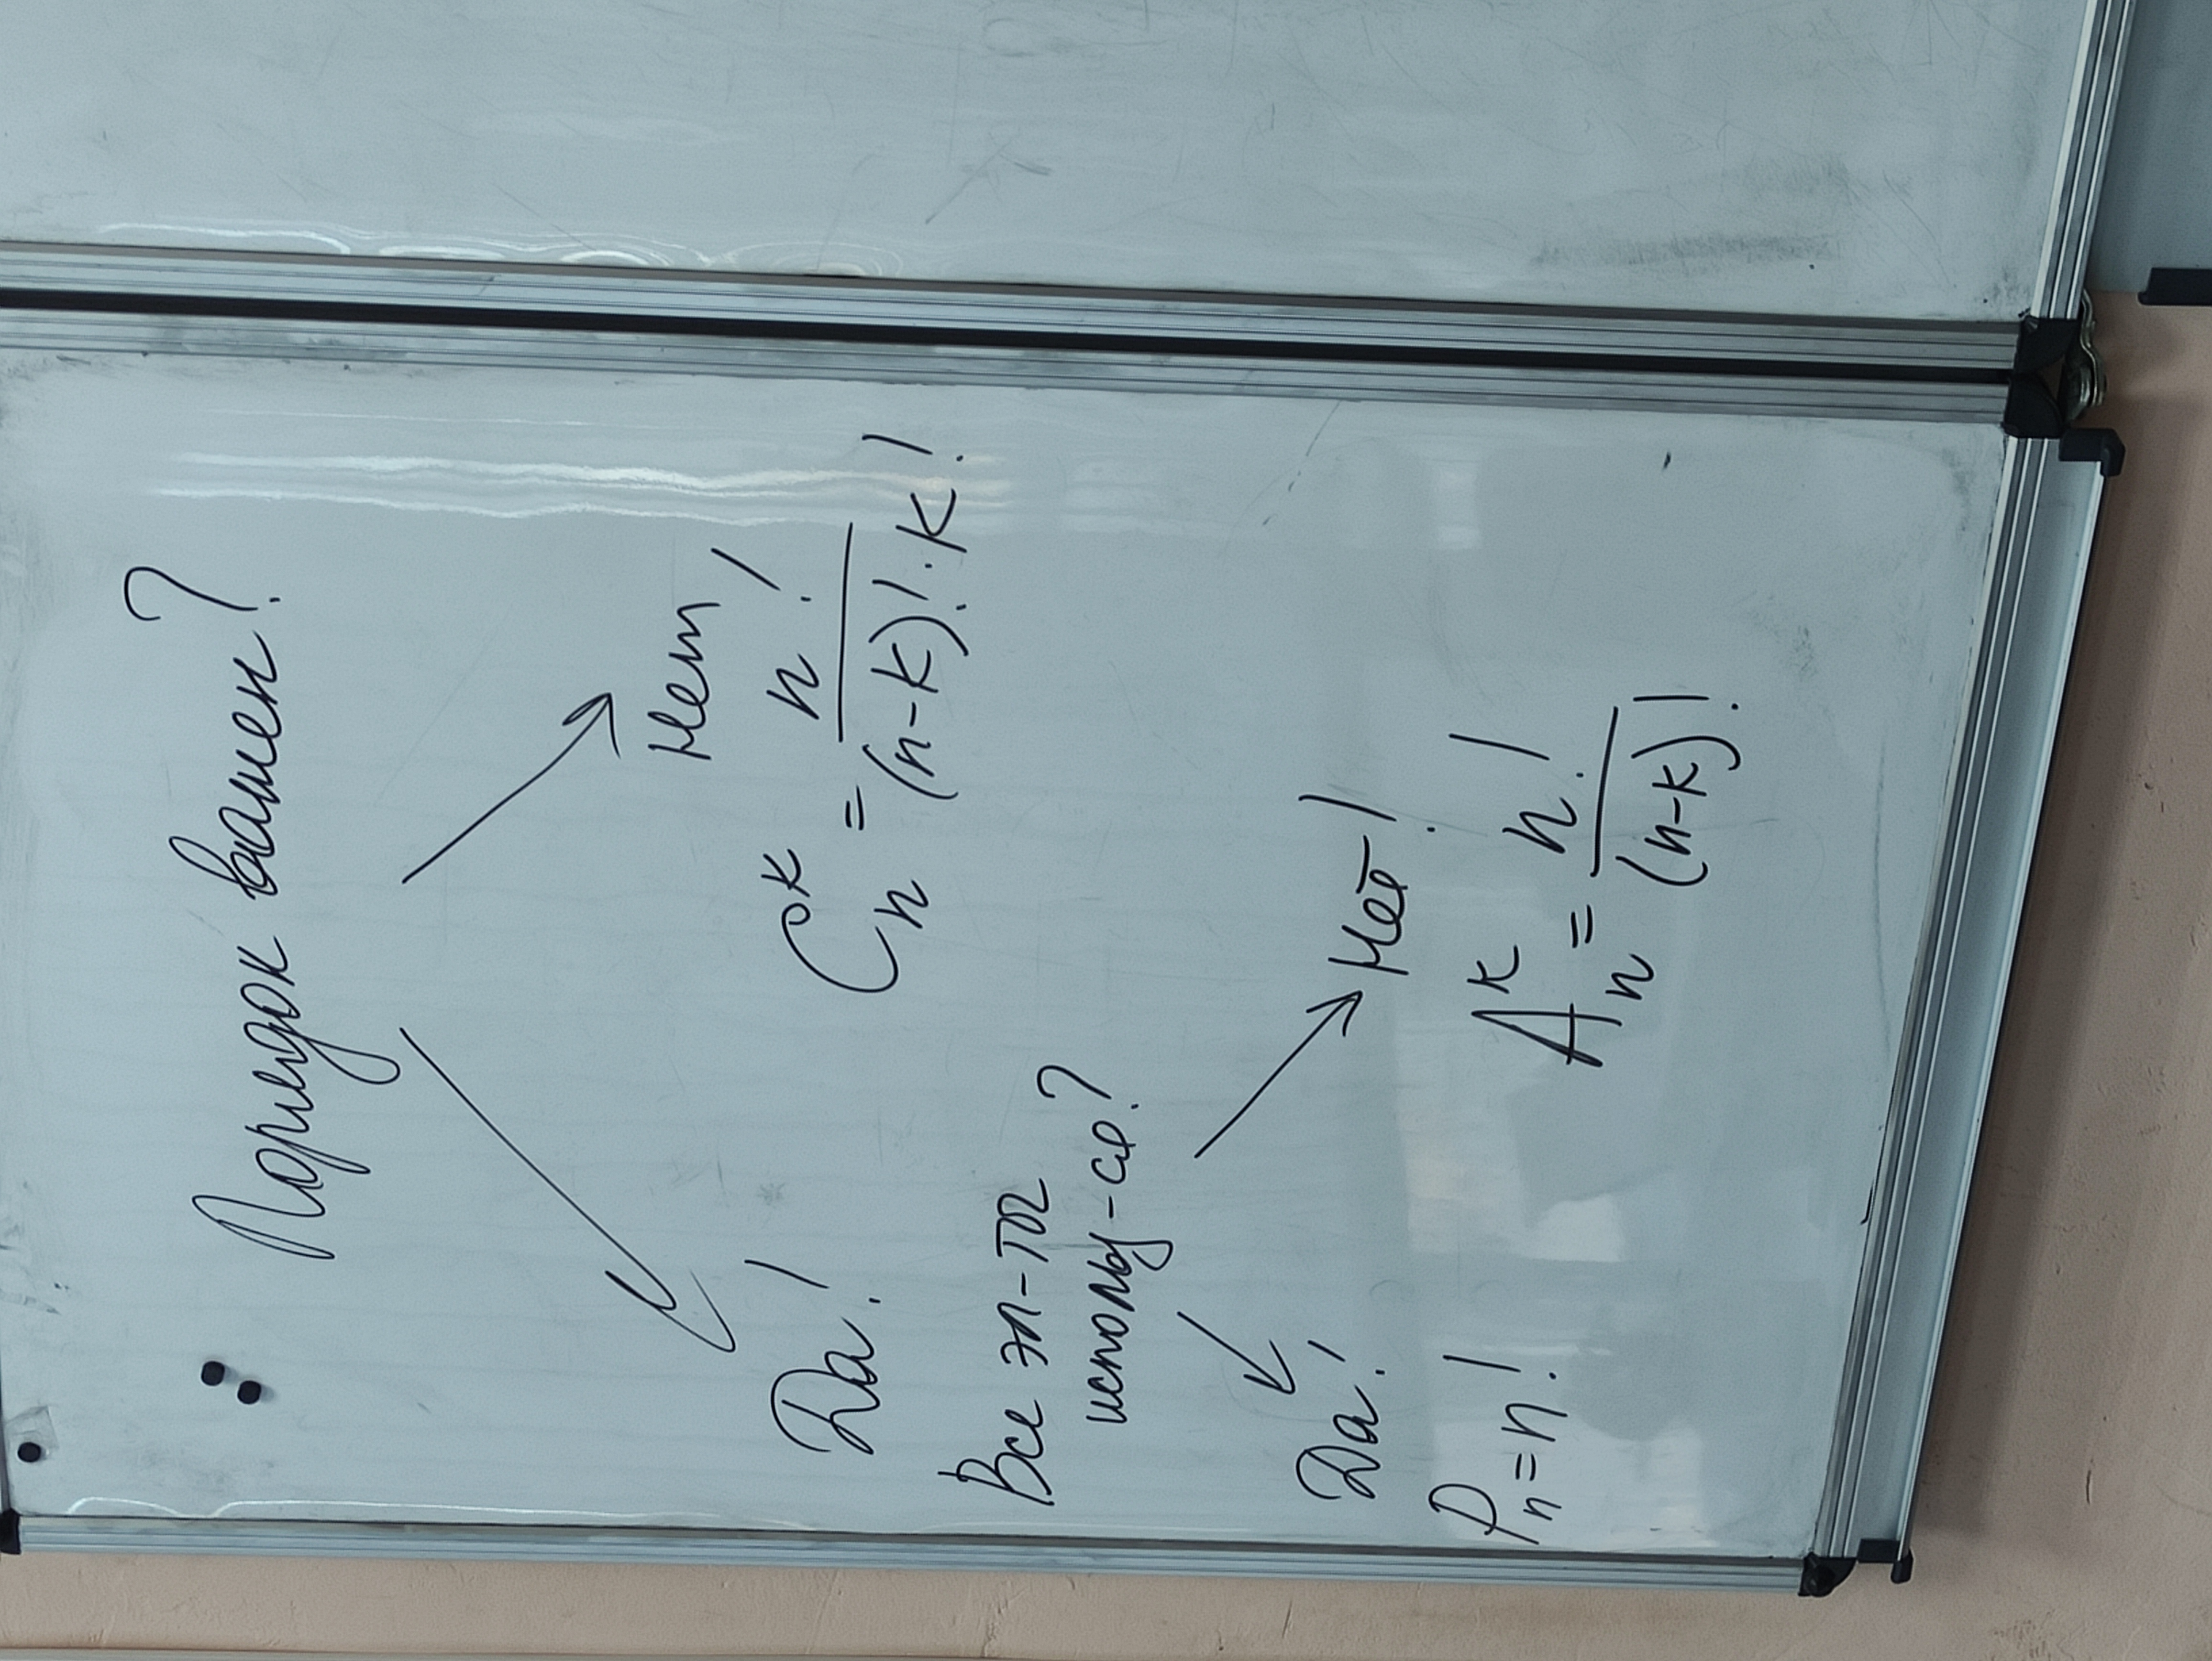 Порядок важен?
Да!
Нет
C_n^k = n! / ((n-k)! · k!)
Все эл-ты
использ-ся?
Да!
Нет!
P_n = n!
A_n^k = n! / (n-k)!